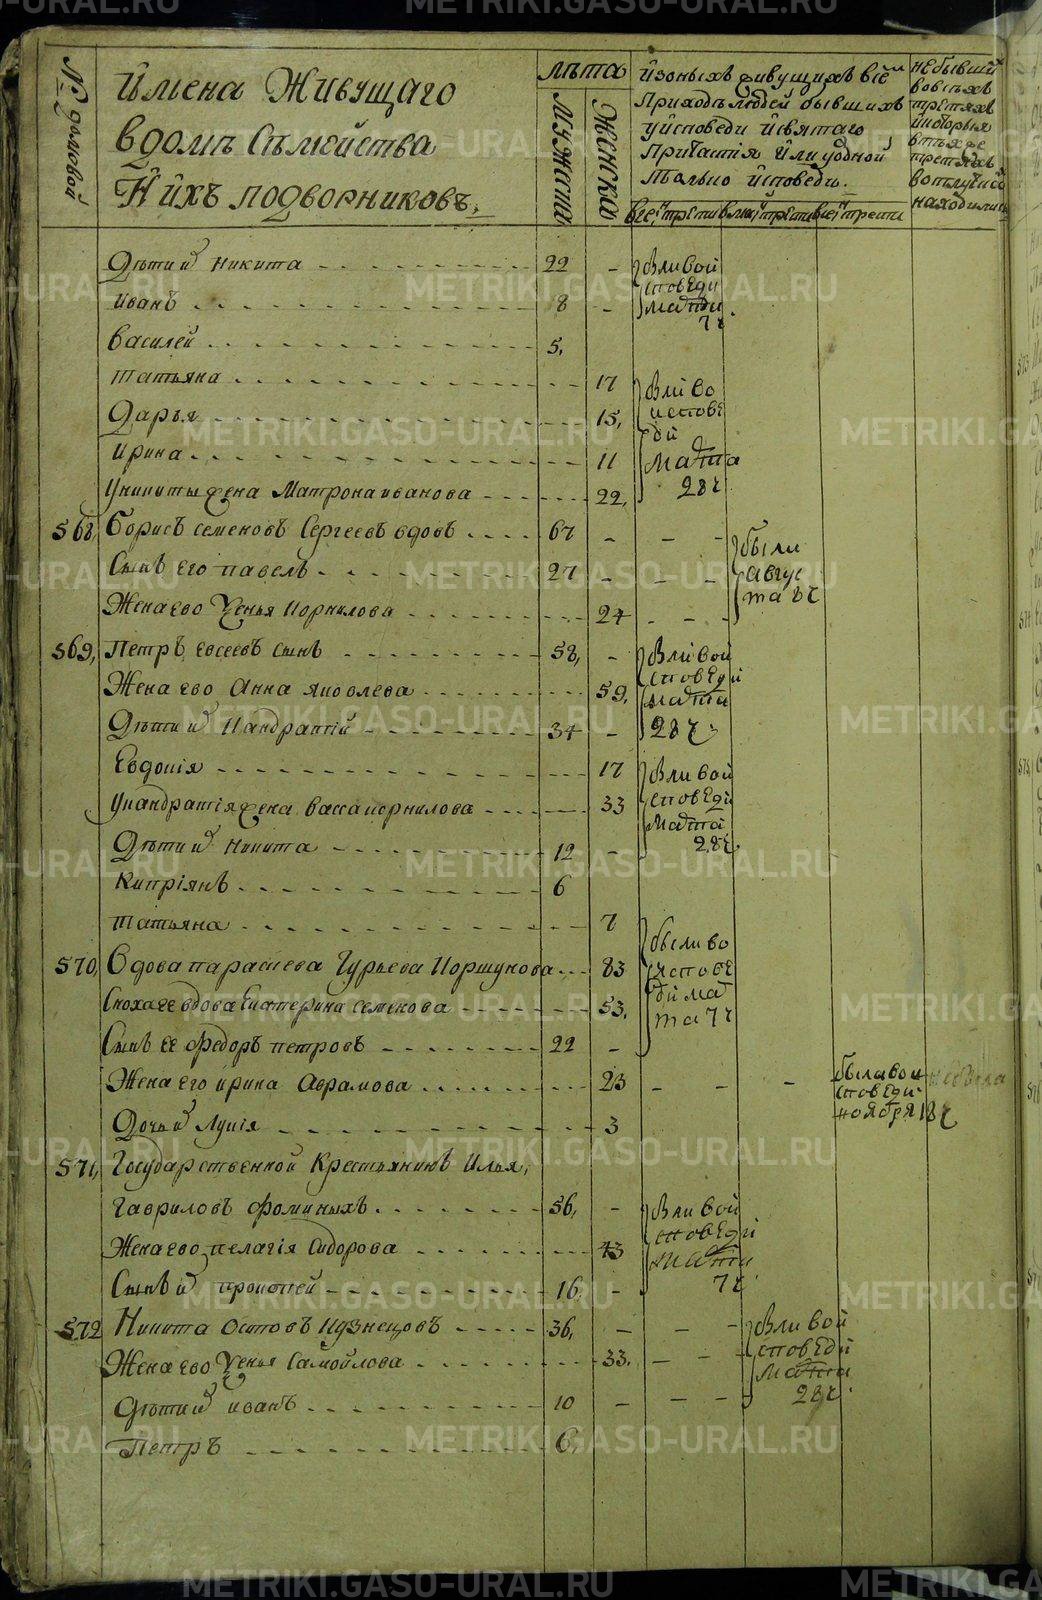 № домовой
Имена Живущаго
вдомѣ Съмейства
Ӣ ихъ подворниковъ.
лѣта
Мужска
Женска
Изоныхъ живущихъ всіе
Приходъ людей бывшихъ
уисповеди исвятаго
Притастія Или уодной
Только исповеди.
небывшия
вовсѣхъ
третяхъ
икоторыя
втѣхже
третяхъ
находились
Дѣтии никита 22 -
были вои
споведи
марта
7 ч
иванъ 8 -
василей 5,
татьяна 17
были во
испове
ди
марта
28 ч
Дарья 15,
ирина 11
Уникиты жена Матрона иванова 22,
568, Борисъ семеновъ Сергеевъ вдовъ 67 - - -
были
авгус
та 8 ч
Сынъ его павелъ 27 - - -
Жена ево Ксенья Корнилова 24 - - -
569, Петръ евсеевъ сынъ 58, -
были вои
споведи
марта
28 ч
Жена ево Анна яковлева 59,
Дѣтии Кандратій 34 -
Евдокія 17
были вои
споведи
марта
28 ч
Укандратія жена васса корнилова 33
Дѣтии никита 12 -
Кипріянъ 6
татьяна 7
были во
испове
ди мар
та 7 ч
570, Вдова параскева Гурьева Коршунова 83
Сноха ее вдова Екатерина семенова 53,
Сынъ ее Федоръ петровъ 22 -
Жена его ирина Аврамова 23 - - -
была вои
споведи
ноября 18 ч
Дочь и Лукія 3
571, Государственной Крестьянинъ Илья,
Гавриловъ фоминыхъ 56, -
были вои
споведи
марта
7 ч
Жена ево пелагія Сидорова 43
Сынъ и прокопей 16 -
572 Никита осиповъ Кузнецовъ 36, - - -
были вои
споведи
марта
28 ч
Жена ево Ксенья Самойлова 33. - - -
Дѣтии иванъ 10 - - -
Петръ 6,
METRIKI.GASO-URAL.RU